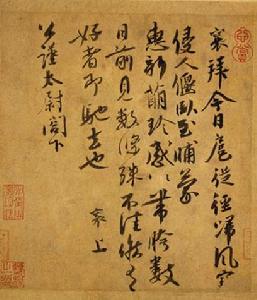 襄拜今日扈從徑歸風寒
侵人偃臥至晡蒙
惠新萌珍感帶胯數
日前見數條殊不佳候有
好者即馳去也 襄上
公謹太尉閣下